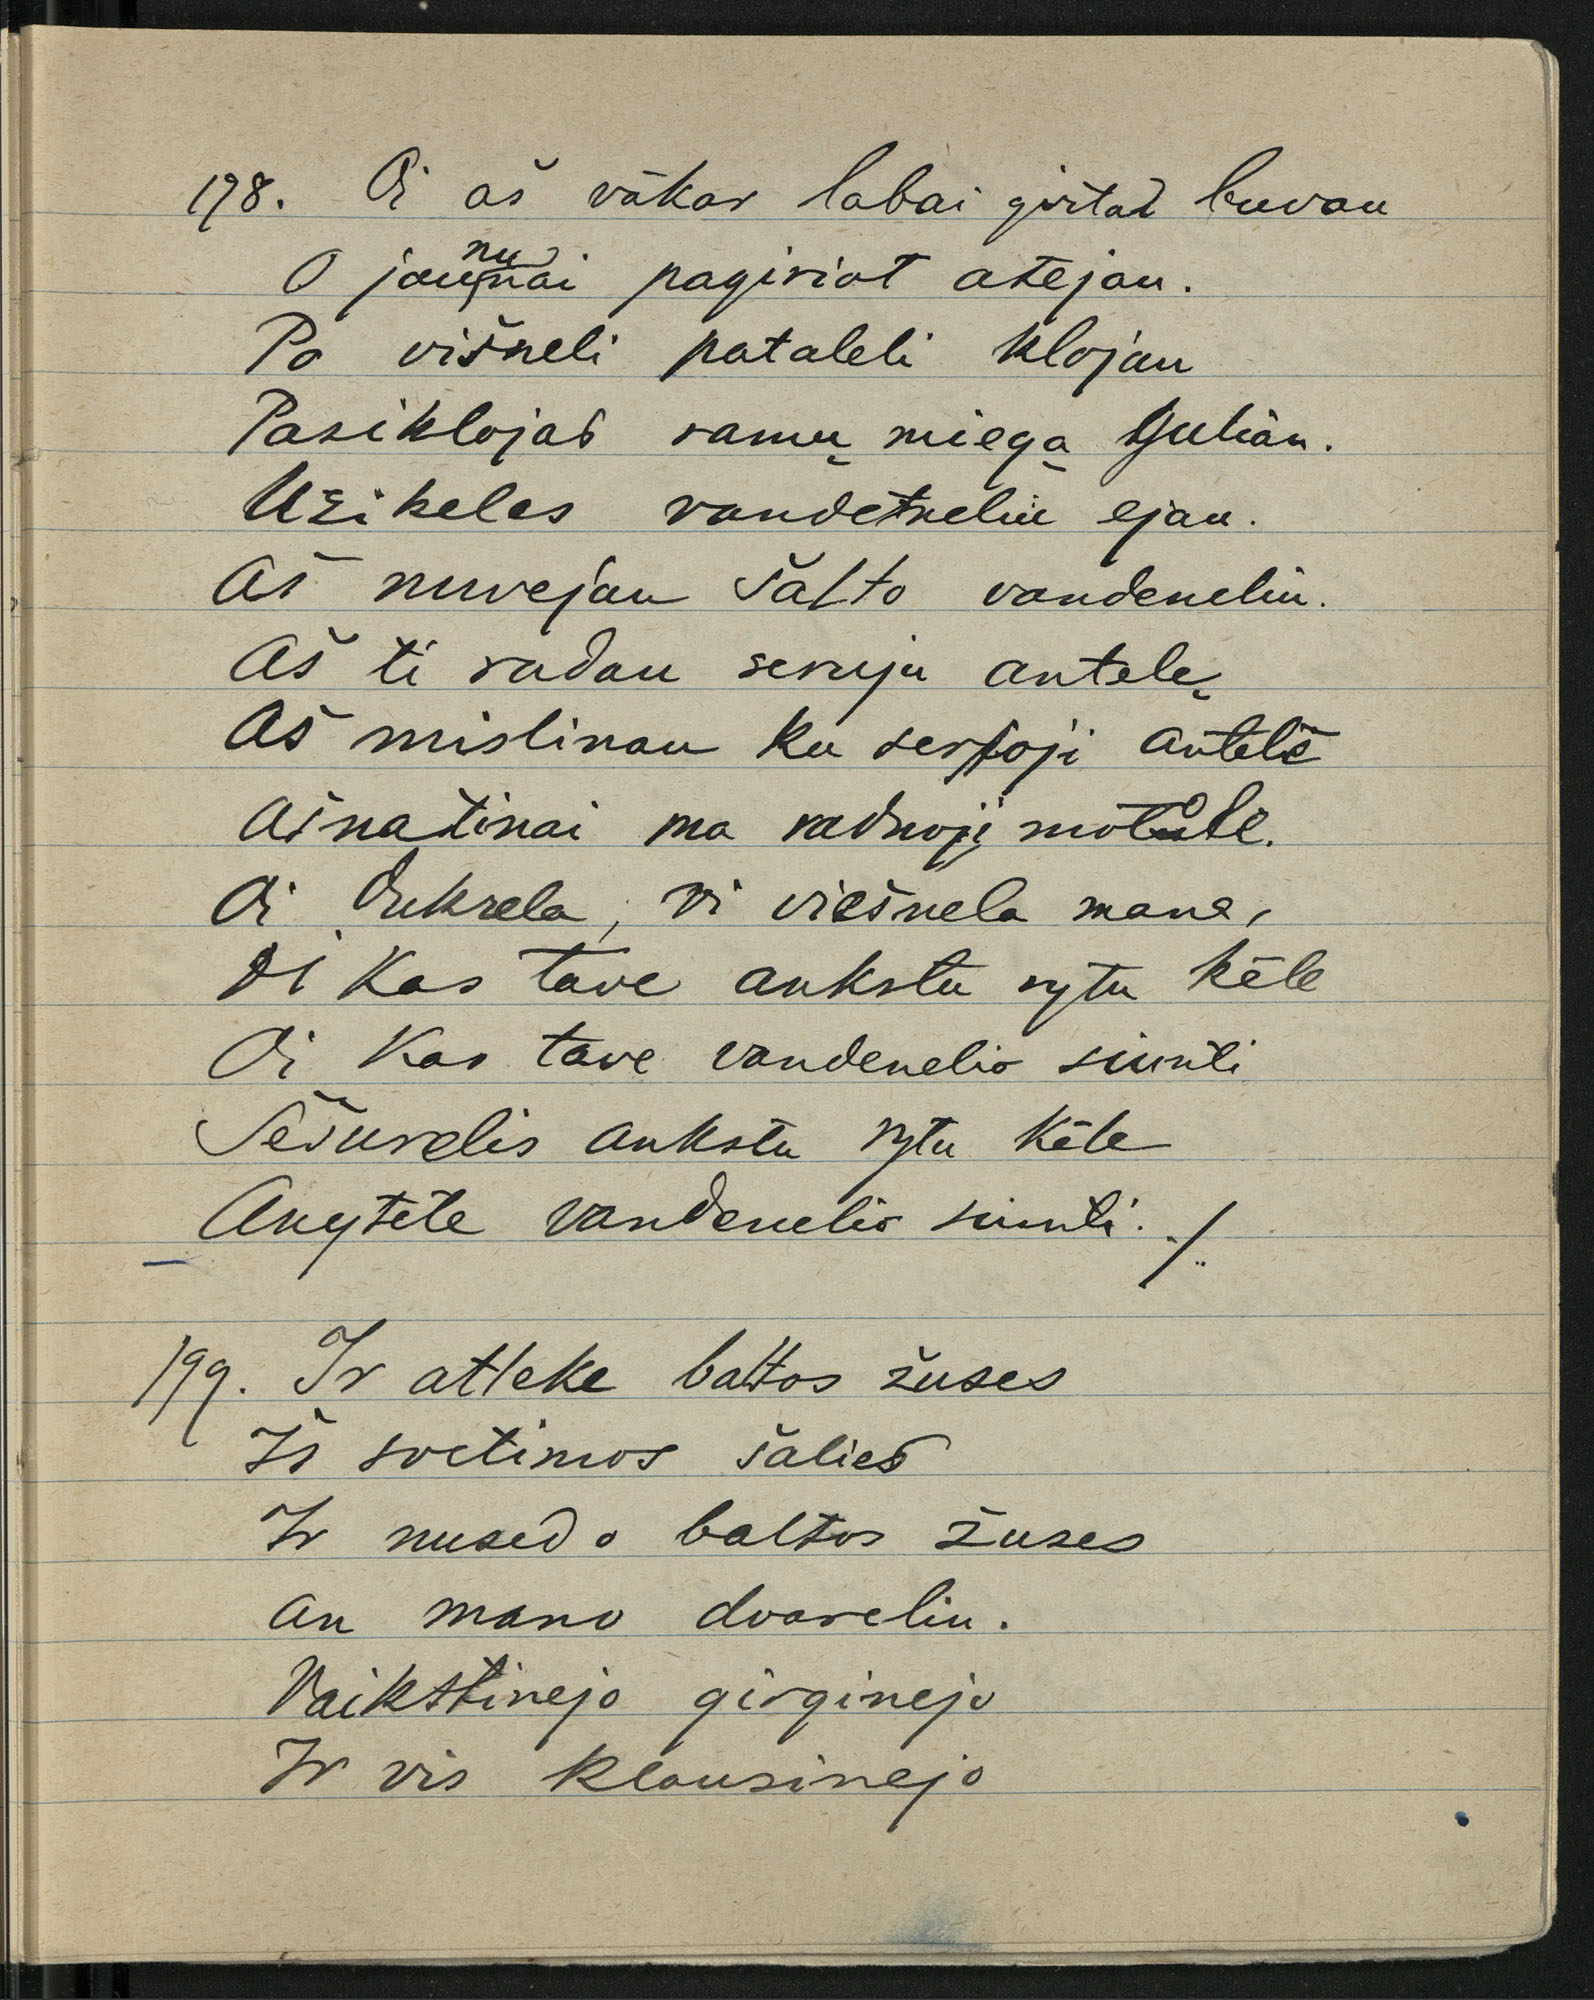 198. Oi aš vakar labai girtas buvau
O jaunu nai pagiriot atejau.
Po višneli pataleli klojau
Pasiklojas ramų miegą guliau.
Užikelas vandeneliu ejau.
Aš nuvejau šalto vandeneliu.
Aš ti radau seruju antelę
Aš mislinau ku seroji antelė
Ašnatinai ma rodnoji motule.
Oi dukrela, vi viešnela mana,
Oi Kas tave ankstu rytu kėle
Oi Kas tave vandenelio siunti
Šešurelis ankstu rytu kėle
Anytėle vandenelio siunti. ./.
199. Ir atleke baltos žuses
Iš svetimos šalies
Ir nusedo baltos žuses
an mano dvareliu.
Vaikštinejo girginejo
Ir vis klausinejo